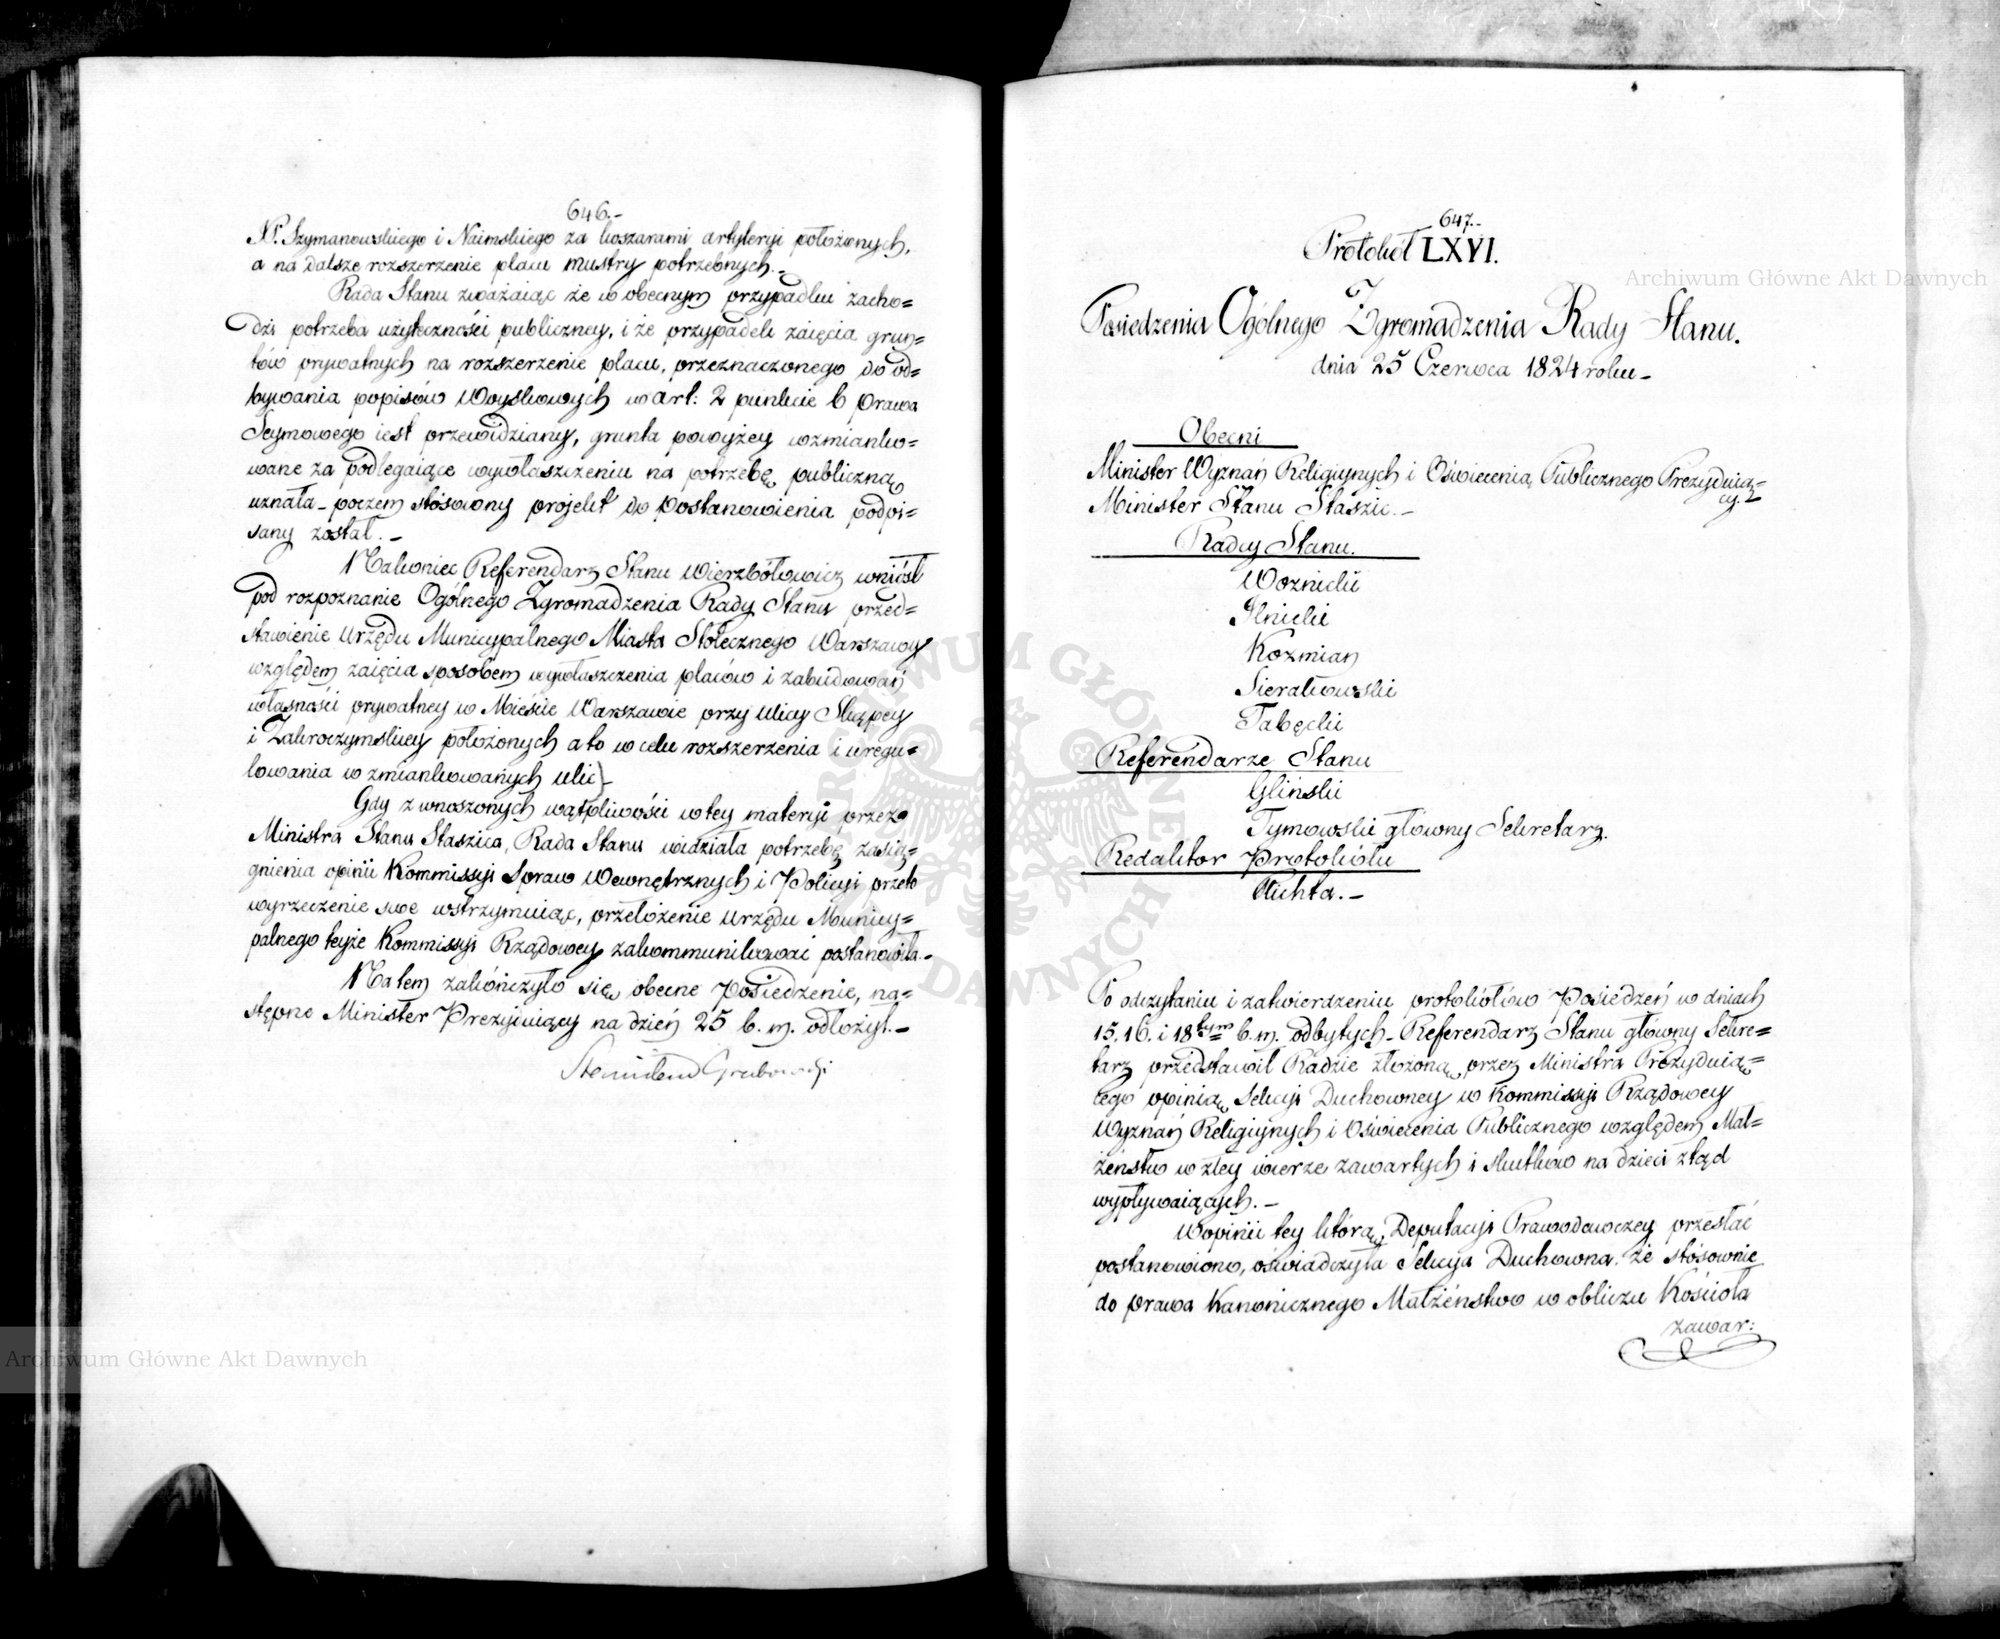 646.-
Szymanowskiego i Naimskiego za koszarami artyleryi położonych,
a na dalsze rozszerzenie placu mustry potrzebnych.-
Rada Stanu zważaiąc że w obecnym przypadku zacho=
dzi potrzeba użyteczności publiczney, i że przypadek zaięcia grun=
tów prywatnych na rozszerzenie placu, przeznaczonego do od=
bywania popisów Woyskowych w art: 2 punkcie b prawa
Seymowego iest przewidziany, grunta powyżey wzmianko=
wane za podlegaiące wywłaszczeniu na potrzebę publiczną
uznała - poczem stósowny projekt do postanowienia podpi=
sany został.-
Nakoniec Referendarz Stanu Wierzbółowicz wniósł
pod rozpoznanie Ogólnego Zgromadzenia Rady Stanu przed=
stawienie Urzędu Municypalnego Miasta Stołecznego Warszawy
względem zaięcia sposobem wywłaszczenia placów i zabudowań
własności prywatney w Mieście Warszawie przy ulicy Ślepey
i Zakroczymskiey położonych a to w celu rozszerzenia i uregu=
lowania wzmiankowanych ulic)-
Gdy z wnoszonych wątpliwości w tey materyi przez
Ministra Stanu Staszica, Rada Stanu widziała potrzebę zasią=
gnienia opinii Kommissyi Spraw Wewnętrznych i Policyi przeto
wyrzeczenie swe wstrzymuiąc, przełożenie Urzędu Municy=
palnego teyże Kommissyi Rządowey zakommunikować postanowiła.-
Na tem zakończyło się obecne Posiedzenie, na=
stępne Minister Prezyduiący na dzień 25 b. m. odłożył.-
Stanisław Grabowski
647.-
Protokół LXVI.
Posiedzenia Ogólnego Zgromadzenia Rady Stanu.
dnia 25 Czerwca 1824 roku -
Obecni
Minister Wyznań Religiynych i Oświecenia Publicznego Prezyduią=
cy.
Minister Stanu Staszic.-
Radcy Stanu.
Woznicki
Ilnicki
Kozmian
Sierakowski
Tabęcki
Referendarze Stanu
Gliński
Tymowski główny Sekretarz.
Redaktor Protokółu
Kuhta.-
Po odczytaniu i zatwierdzeniu protokółów Posiedzeń w dniach
15. 16. i 18tym b. m. odbytych - Referendarz Stanu główny Sekre=
tarz przedstawił Radzie złożoną przez Ministra Prezyduią=
cego opinią Sekcyi Duchowney w Kommissyi Rządowey
Wyznań Religiynych i Oświecenia Publicznego względem Mał=
żeństw w złey wierze zawartych i skutków na dzieci ztąd
wypływaiących.-
W opinii tey którą Deputacyi Prawodawczey przesłać
postanowiono, oświadczyła Sekcya Duchowna: że stósownie
do prawa Kanonicznego Małżeństwo w obliczu Kościoła
zawar:
Archiwum Główne Akt Dawnych
Archiwum Główne Akt Dawnych
ARCHIWUM GŁÓWNE AKT DAWNYCH